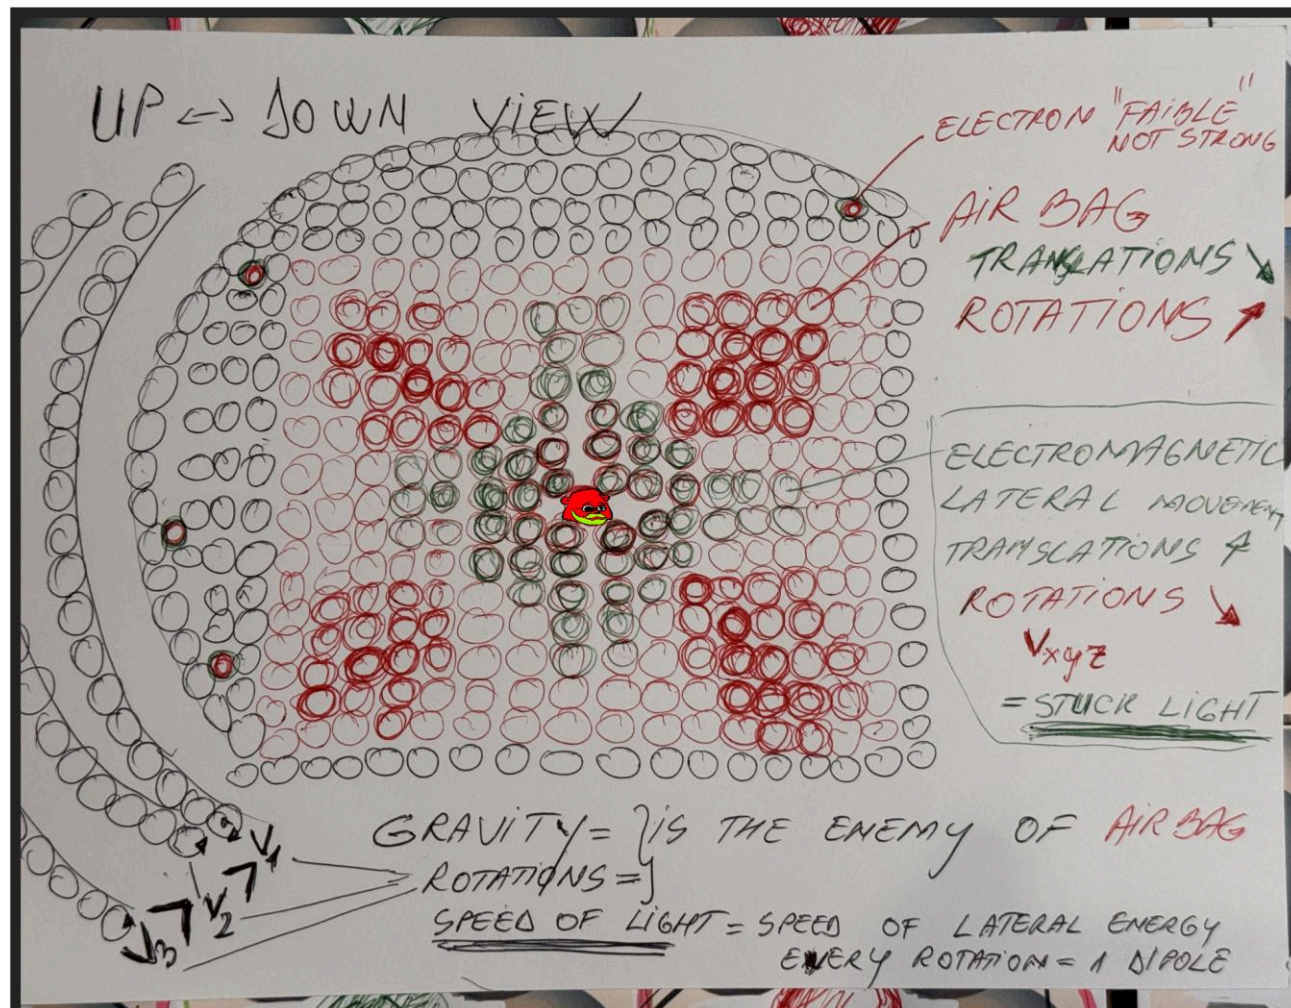 UP ↔ DOWN VIEW
ELECTRON "FAIBLE"
NOT STRONG
AIR BAG
TRANSLATIONS ↘
ROTATIONS ↗
ELECTROMAGNETIC
LATERAL MOVEMENT
TRANSLATIONS ↑
ROTATIONS ↘
Vxyz
= STUCK LIGHT
GRAVITY = } IS THE ENEMY OF AIR BAG
ROTATIONS = }
SPEED OF LIGHT = SPEED OF LATERAL ENERGY
EVERY ROTATION = 1 DIPOLE
V3 > V2 > V1